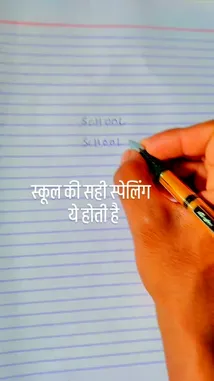 SCHOOL
SCHOOL
स्कूल की सही स्पेलिंग
ये होती है